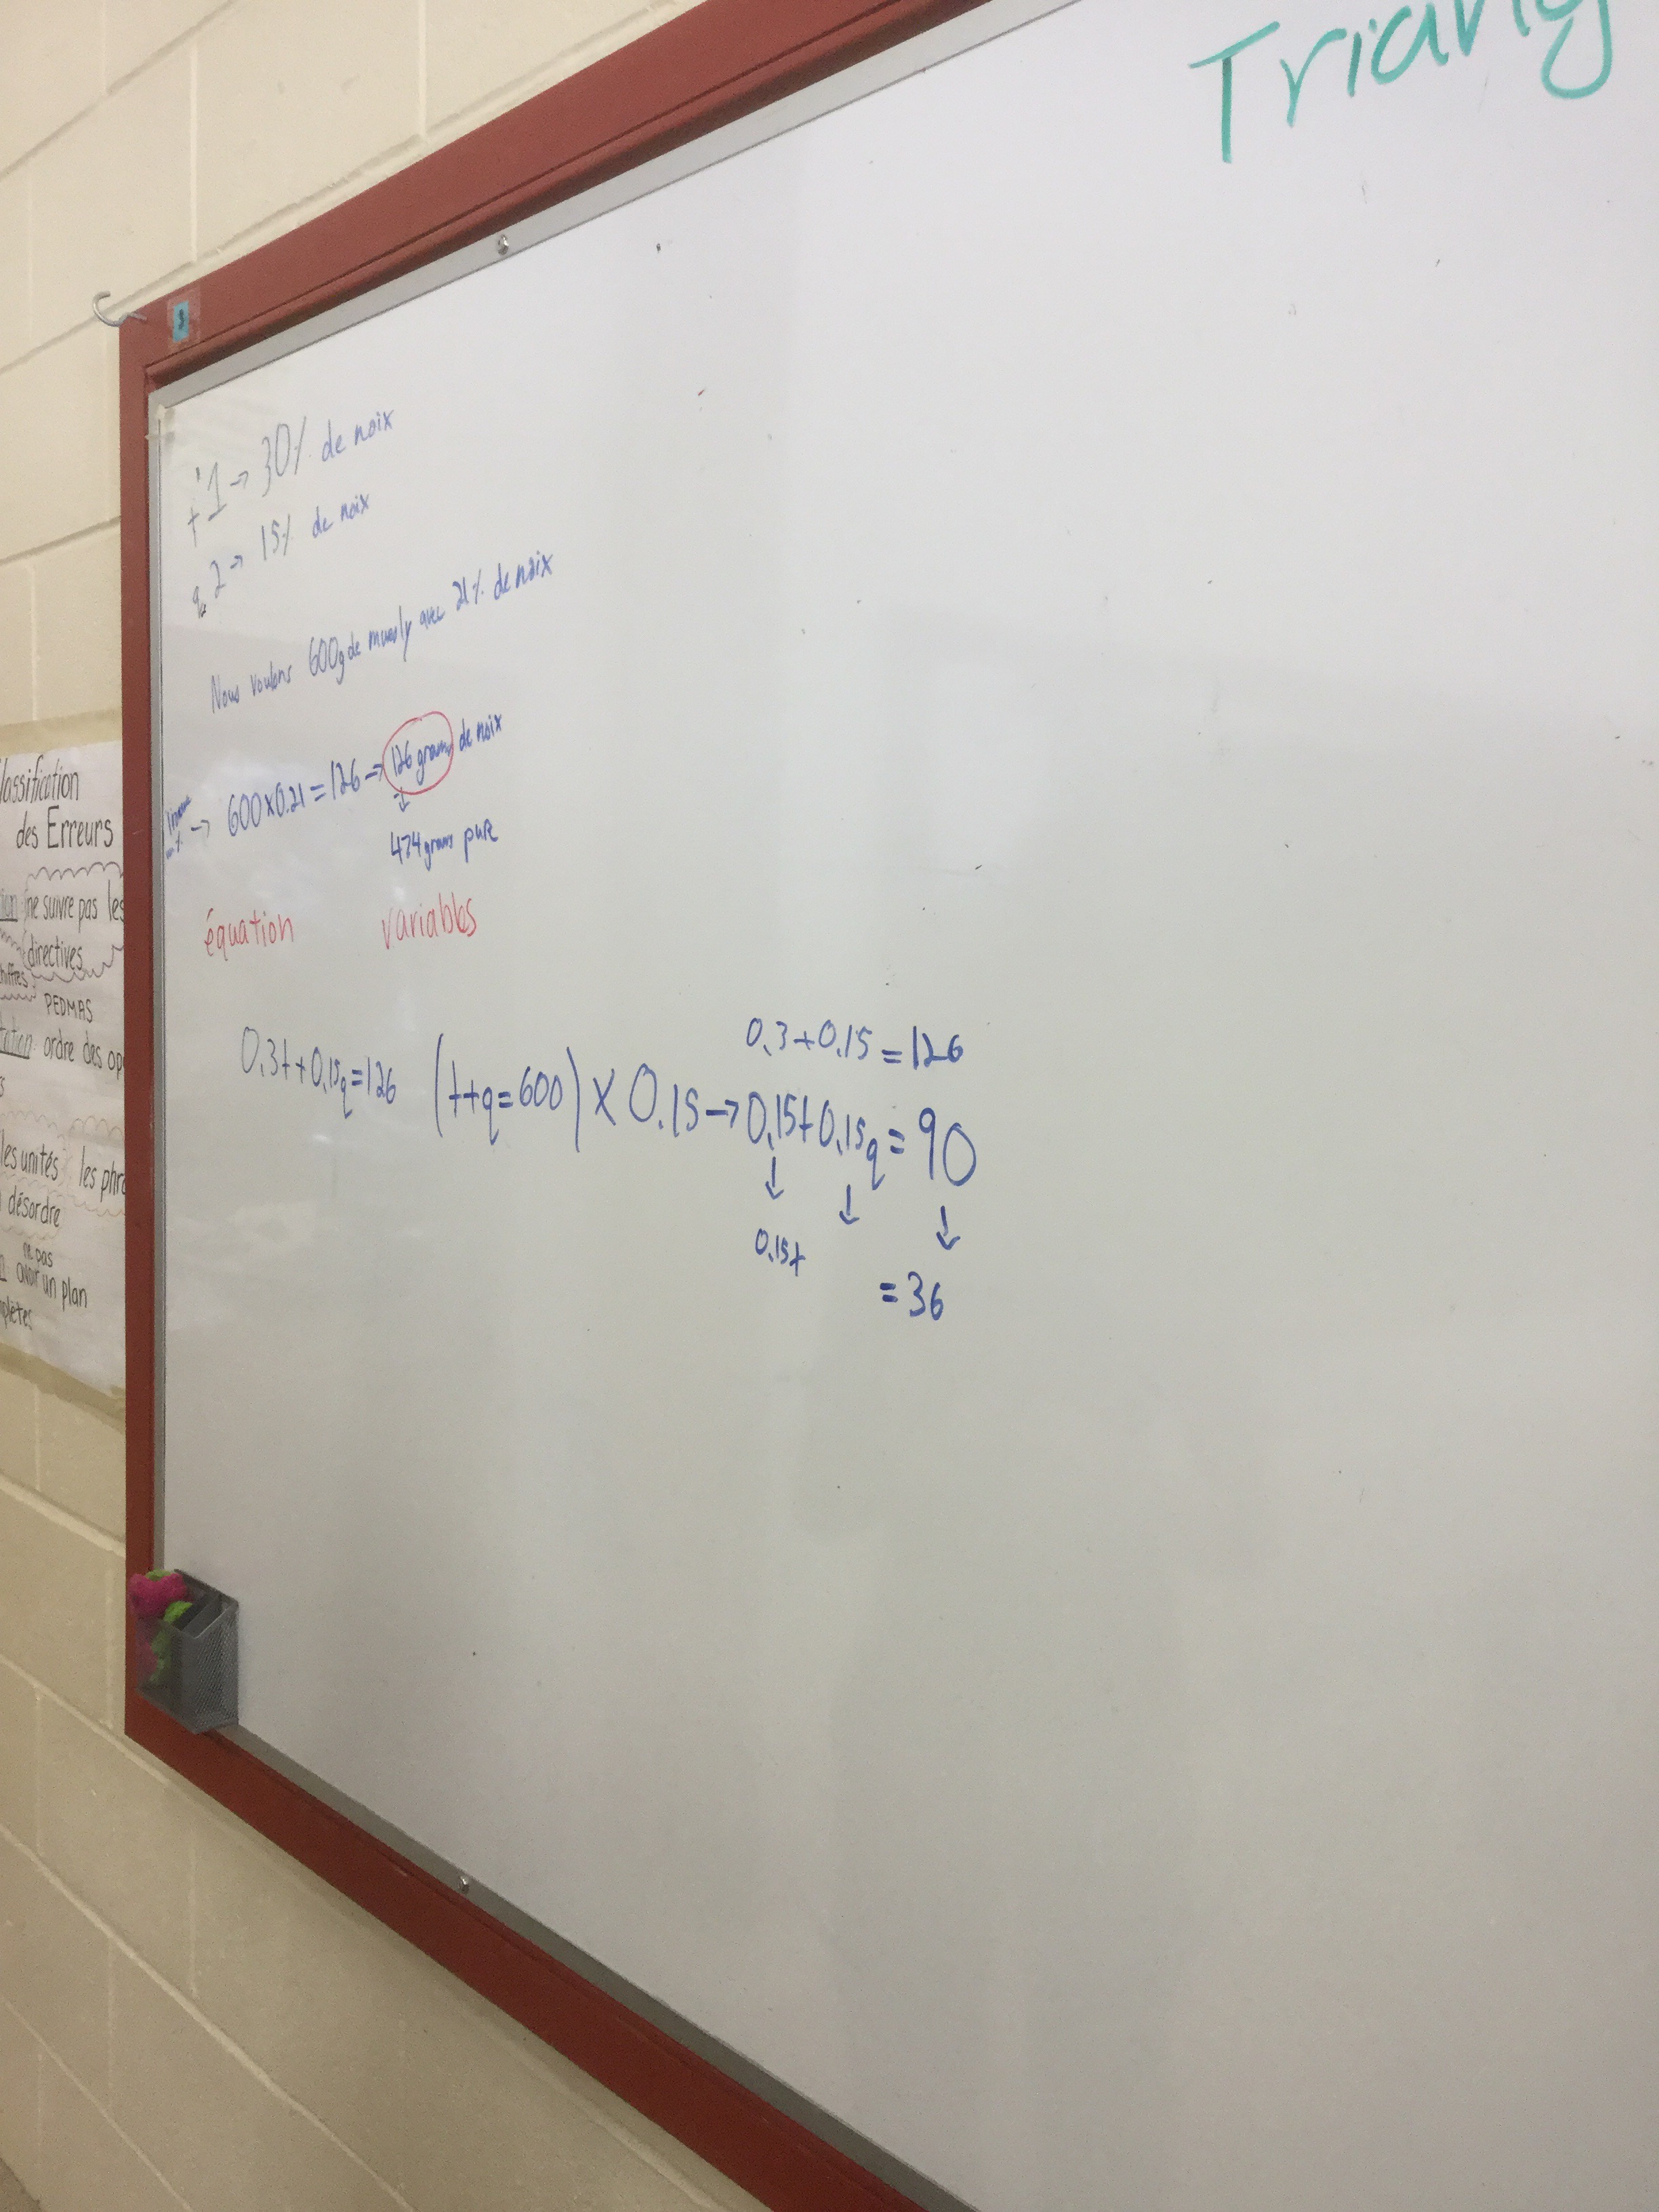 Triang
3
t 1 → 30% de noix
q 2 → 15% de noix
Nous voulons 600g de muesly avec 21% de noix
→ 600x0.21=126 → 126 grams de noix
↓
474 grams pure
équation variables
0.3+0.15=126
0.3t+0.15q=126 (t+q=600) x 0.15 → 0.15t+0.15q=90
↓ ↓ ↓
0.15t
=36
lassification
des Erreurs
ne suivre pas les
directives
hiffres
PEDMAS
tation: ordre des op
s
les unités les phra
désordre
ne pas
avoir un plan
mplètes